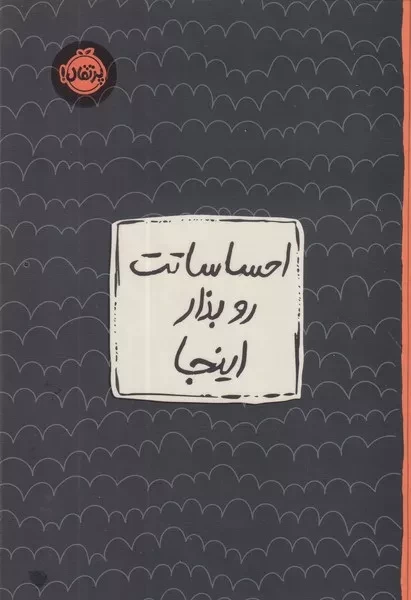 پرتقال!
احساساتت
رو بذار
اینجا